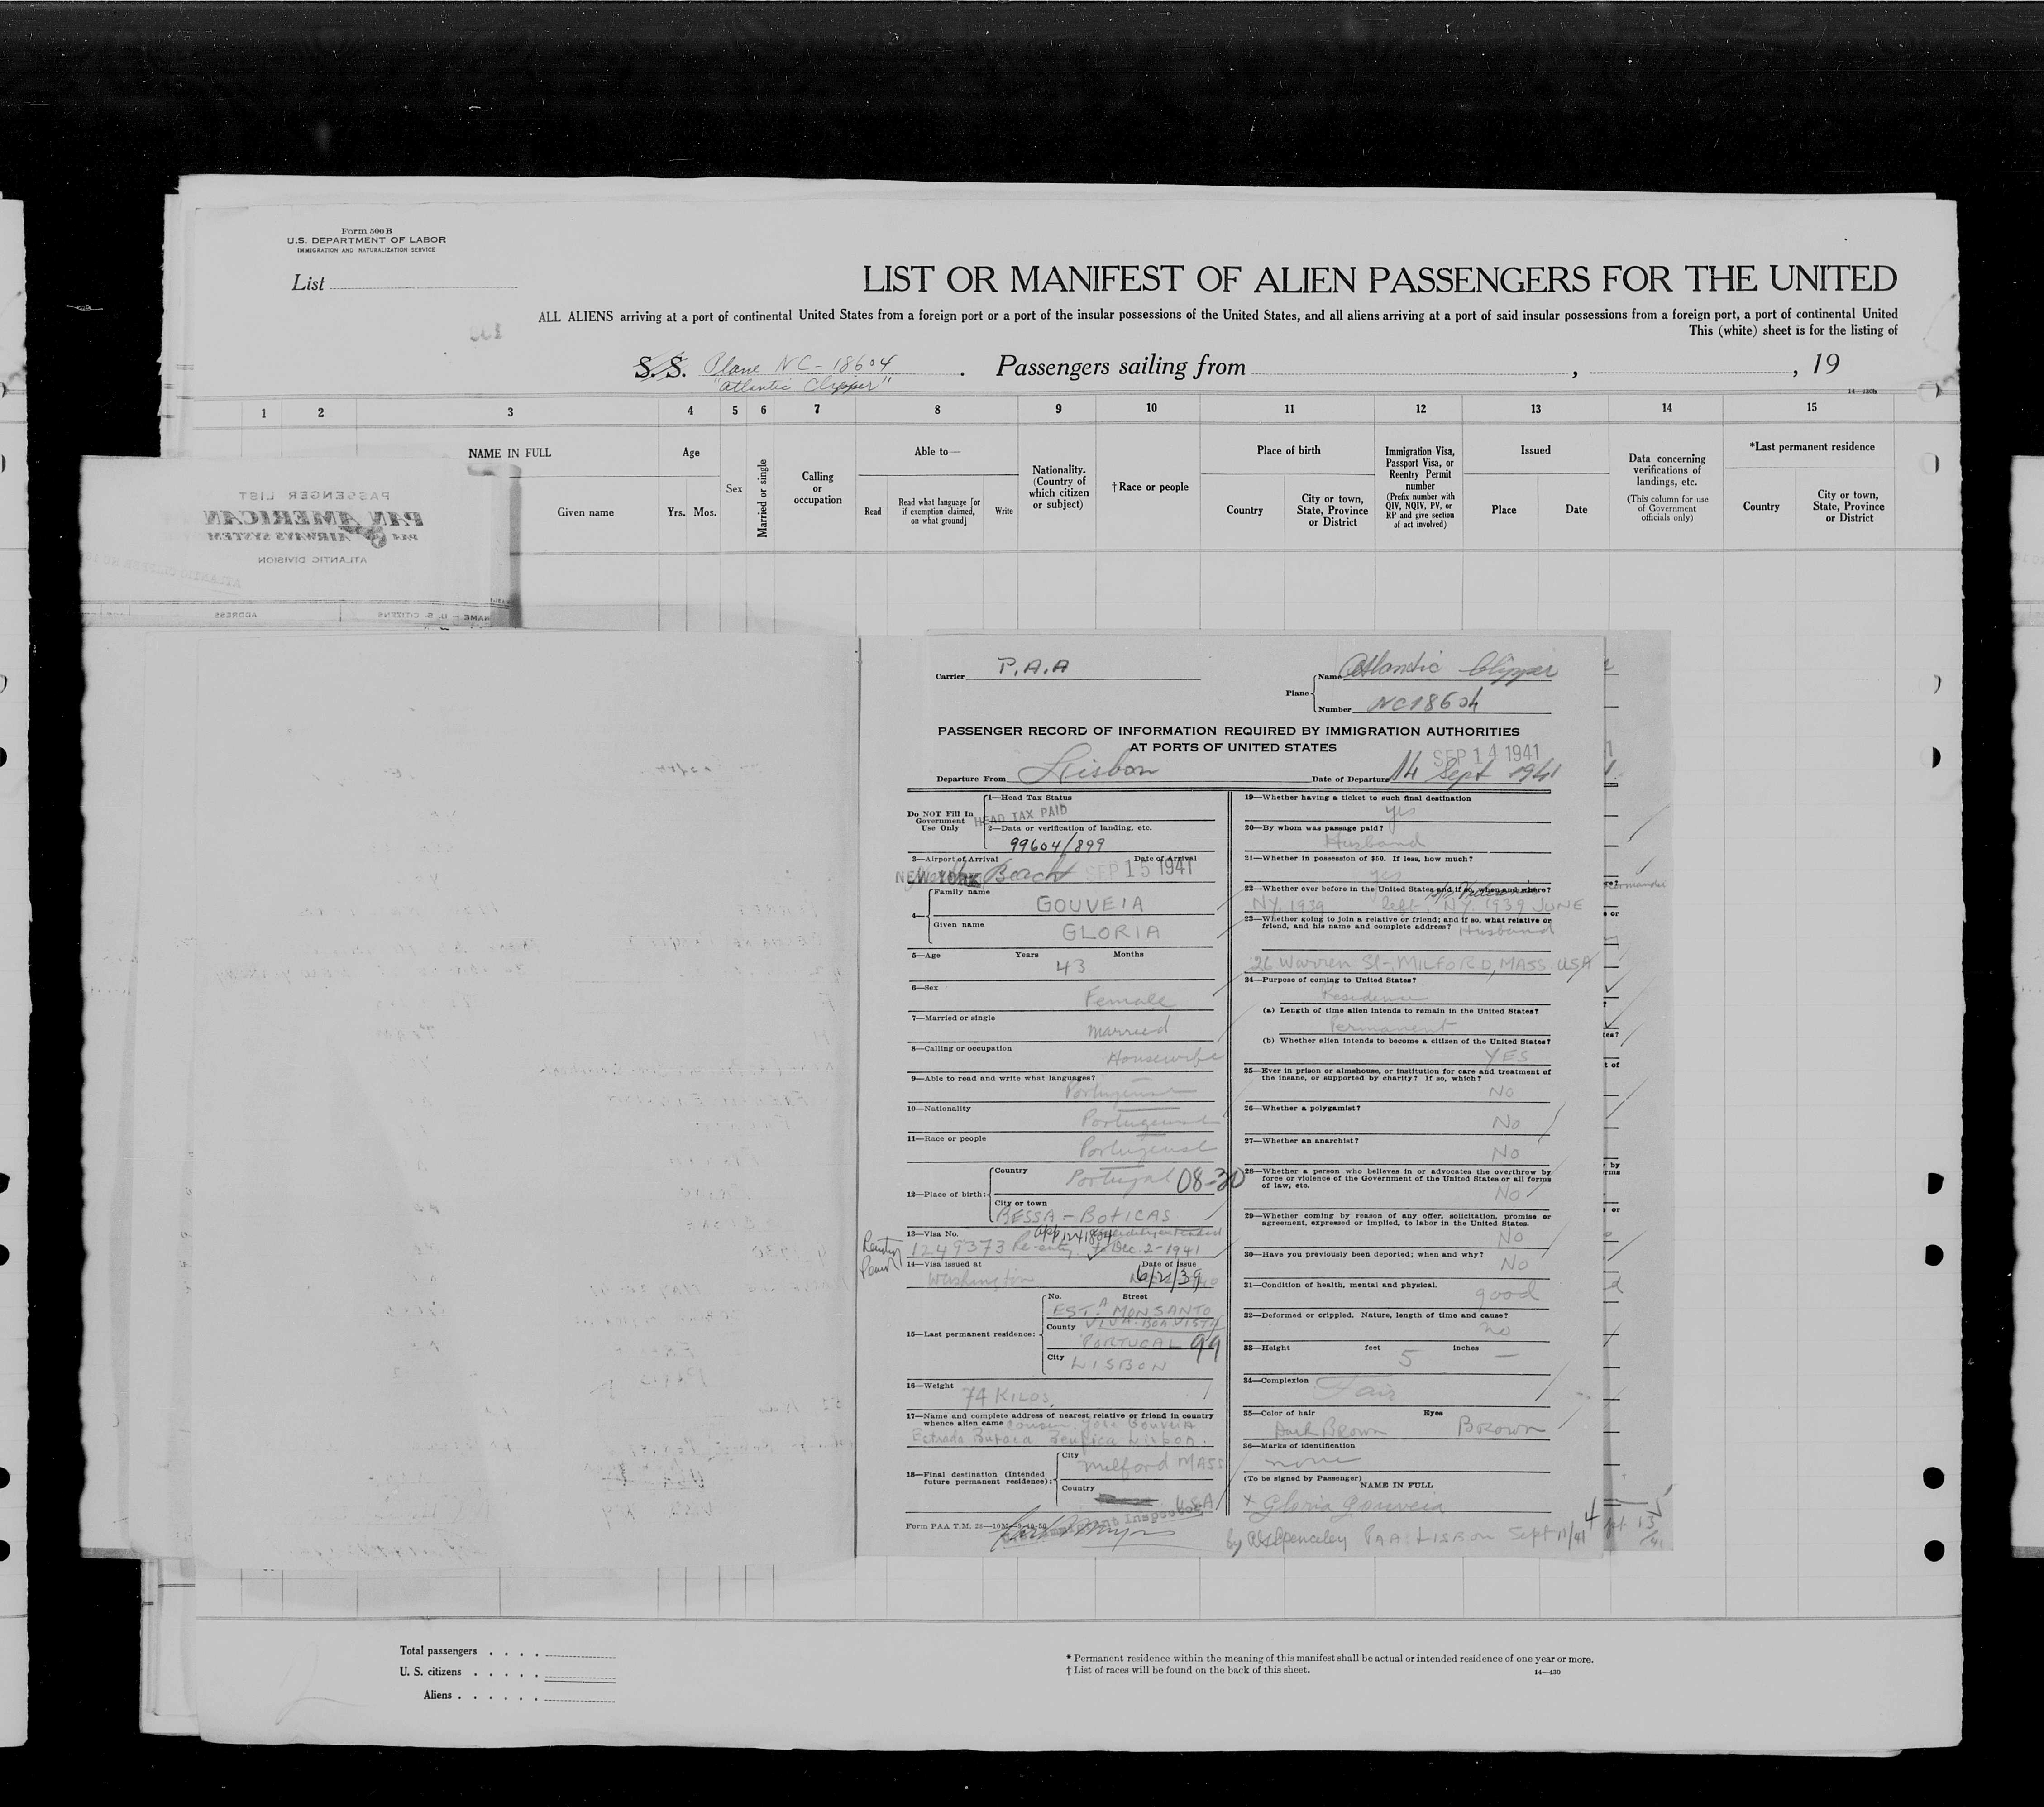 Form 500 B
U.S. DEPARTMENT OF LABOR
IMMIGRATION AND NATURALIZATION SERVICE
List
LIST OR MANIFEST OF ALIEN PASSENGERS FOR THE UNITED
ALL ALIENS arriving at a port of continental United States from a foreign port or a port of the insular possessions of the United States, and all aliens arriving at a port of said insular possessions from a foreign port, a port of continental United
This (white) sheet is for the listing of
S. S. Plane NC-18604 . Passengers sailing from , , 19
"Atlantic Clipper"
14—430b
1 2 3 4 5 6 7 8 9 10 11 12 13 14 15
NAME IN FULL
Given name
Age
Yrs. Mos.
Sex
Married or single
Calling or occupation
Able to—
Read
Read what language [or if exemption claimed, on what ground]
Write
Nationality. (Country of which citizen or subject)
†Race or people
Place of birth
Country
City or town, State, Province or District
Immigration Visa, Passport Visa, or Reentry Permit number
(Prefix number with QIV, NQIV, PV, or RP and give section of act involved)
Issued
Place
Date
Data concerning verifications of landings, etc.
(This column for use of Government officials only)
*Last permanent residence
Country
City or town, State, Province or District
PASSENGER LIST
PAN AMERICAN
PAA AIRWAYS SYSTEM
ATLANTIC DIVISION
NAME — U. S. CITIZENS
ADDRESS
Carrier P.A.A
Plane
Name Atlantic Clipper
Number NC18604
PASSENGER RECORD OF INFORMATION REQUIRED BY IMMIGRATION AUTHORITIES
AT PORTS OF UNITED STATES
SEP 14 1941
Departure From Lisbon
Date of Departure 14 Sept 1941
Do NOT Fill In
Government
Use Only
1—Head Tax Status
HEAD TAX PAID
2—Data or verification of landing, etc.
99604/899
3—Airport of Arrival Date of Arrival
NEW YORK Beach SEP 15 1941
4—
Family name
GOUVEIA
Given name
GLORIA
5—Age Years Months
43
6—Sex
Female
7—Married or single
married
8—Calling or occupation
Housewife
9—Able to read and write what languages?
Portuguese
10—Nationality
Portuguese
11—Race or people
Portuguese
12—Place of birth:
Country
Portugal 08-30
City or town
BESSA - BOTICAS
13—Visa No.
1249373 Re-entry to Dec. 2-1941
Reentry
Permit
14—Visa issued at Date of issue
Washington 6/2/39
15—Last permanent residence:
No. Street
EST.A MONSANTO
County VILA BOA VISTA
PORTUGAL 99
City
LISBON
16—Weight
74 KILOS
17—Name and complete address of nearest relative or friend in country
whence alien came cousin, GOUVEIA
Estrada Buraca Benfica LISBOA.
18—Final destination (Intended
future permanent residence):
City
Milford MASS
Country
USA
Form PAA T.M. 28—10M—9-40-50
Immigrant Inspector
19—Whether having a ticket to such final destination
yes
20—By whom was passage paid?
Husband
21—Whether in possession of $50. If less, how much?
yes
22—Whether ever before in the United States and if so, when and where?
NY. 1939 left N.Y. 1939 JUNE
23—Whether going to join a relative or friend; and if so, what relative or
friend, and his name and complete address? Husband
26 Warren St-, MILFORD, MASS. USA
24—Purpose of coming to United States?
Residence
(a) Length of time alien intends to remain in the United States?
Permanent
(b) Whether alien intends to become a citizen of the United States?
YES
25—Ever in prison or almshouse, or institution for care and treatment of
the insane, or supported by charity? If so, which?
No
26—Whether a polygamist?
No
27—Whether an anarchist?
No
28—Whether a person who believes in or advocates the overthrow by
force or violence of the Government of the United States or all forms
of law, etc.
No
29—Whether coming by reason of any offer, solicitation, promise or
agreement, expressed or implied, to labor in the United States.
No
30—Have you previously been deported; when and why?
No
31—Condition of health, mental and physical.
good
32—Deformed or crippled. Nature, length of time and cause?
no
33—Height feet inches
5 —
34—Complexion
Fair
35—Color of hair Eyes
Dark Brown BROWN
36—Marks of identification
none
(To be signed by Passenger)
NAME IN FULL
x Gloria Gouveia
by Spenceley PAA LISBON Sept 13/41
Total passengers
U. S. citizens
Aliens
* Permanent residence within the meaning of this manifest shall be actual or intended residence of one year or more.
† List of races will be found on the back of this sheet.
14—430